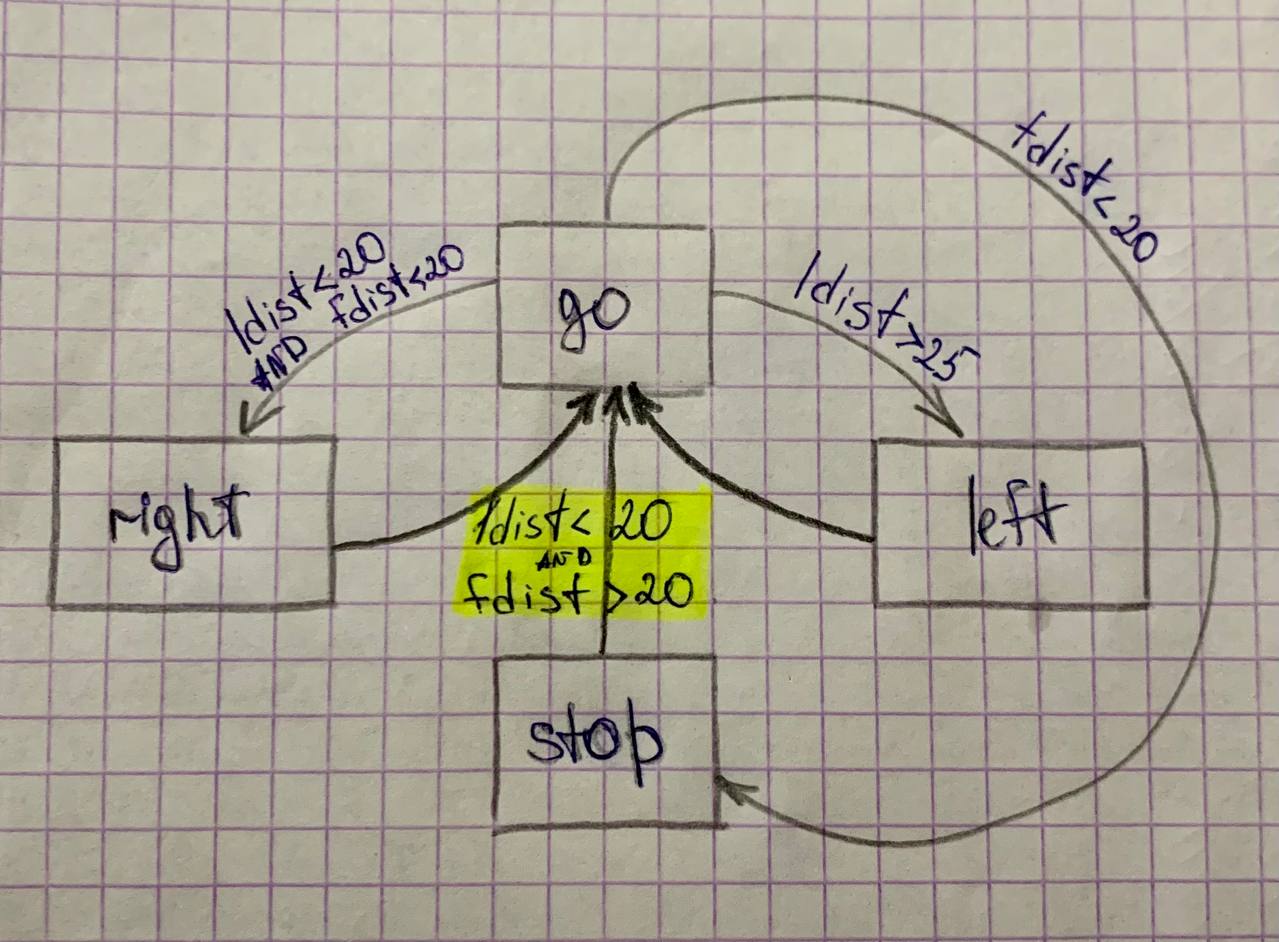 fdist<20
ldist<20
AND fdist<20
go
ldist>25
right
ldist<20
AND
fdist>20
left
stop